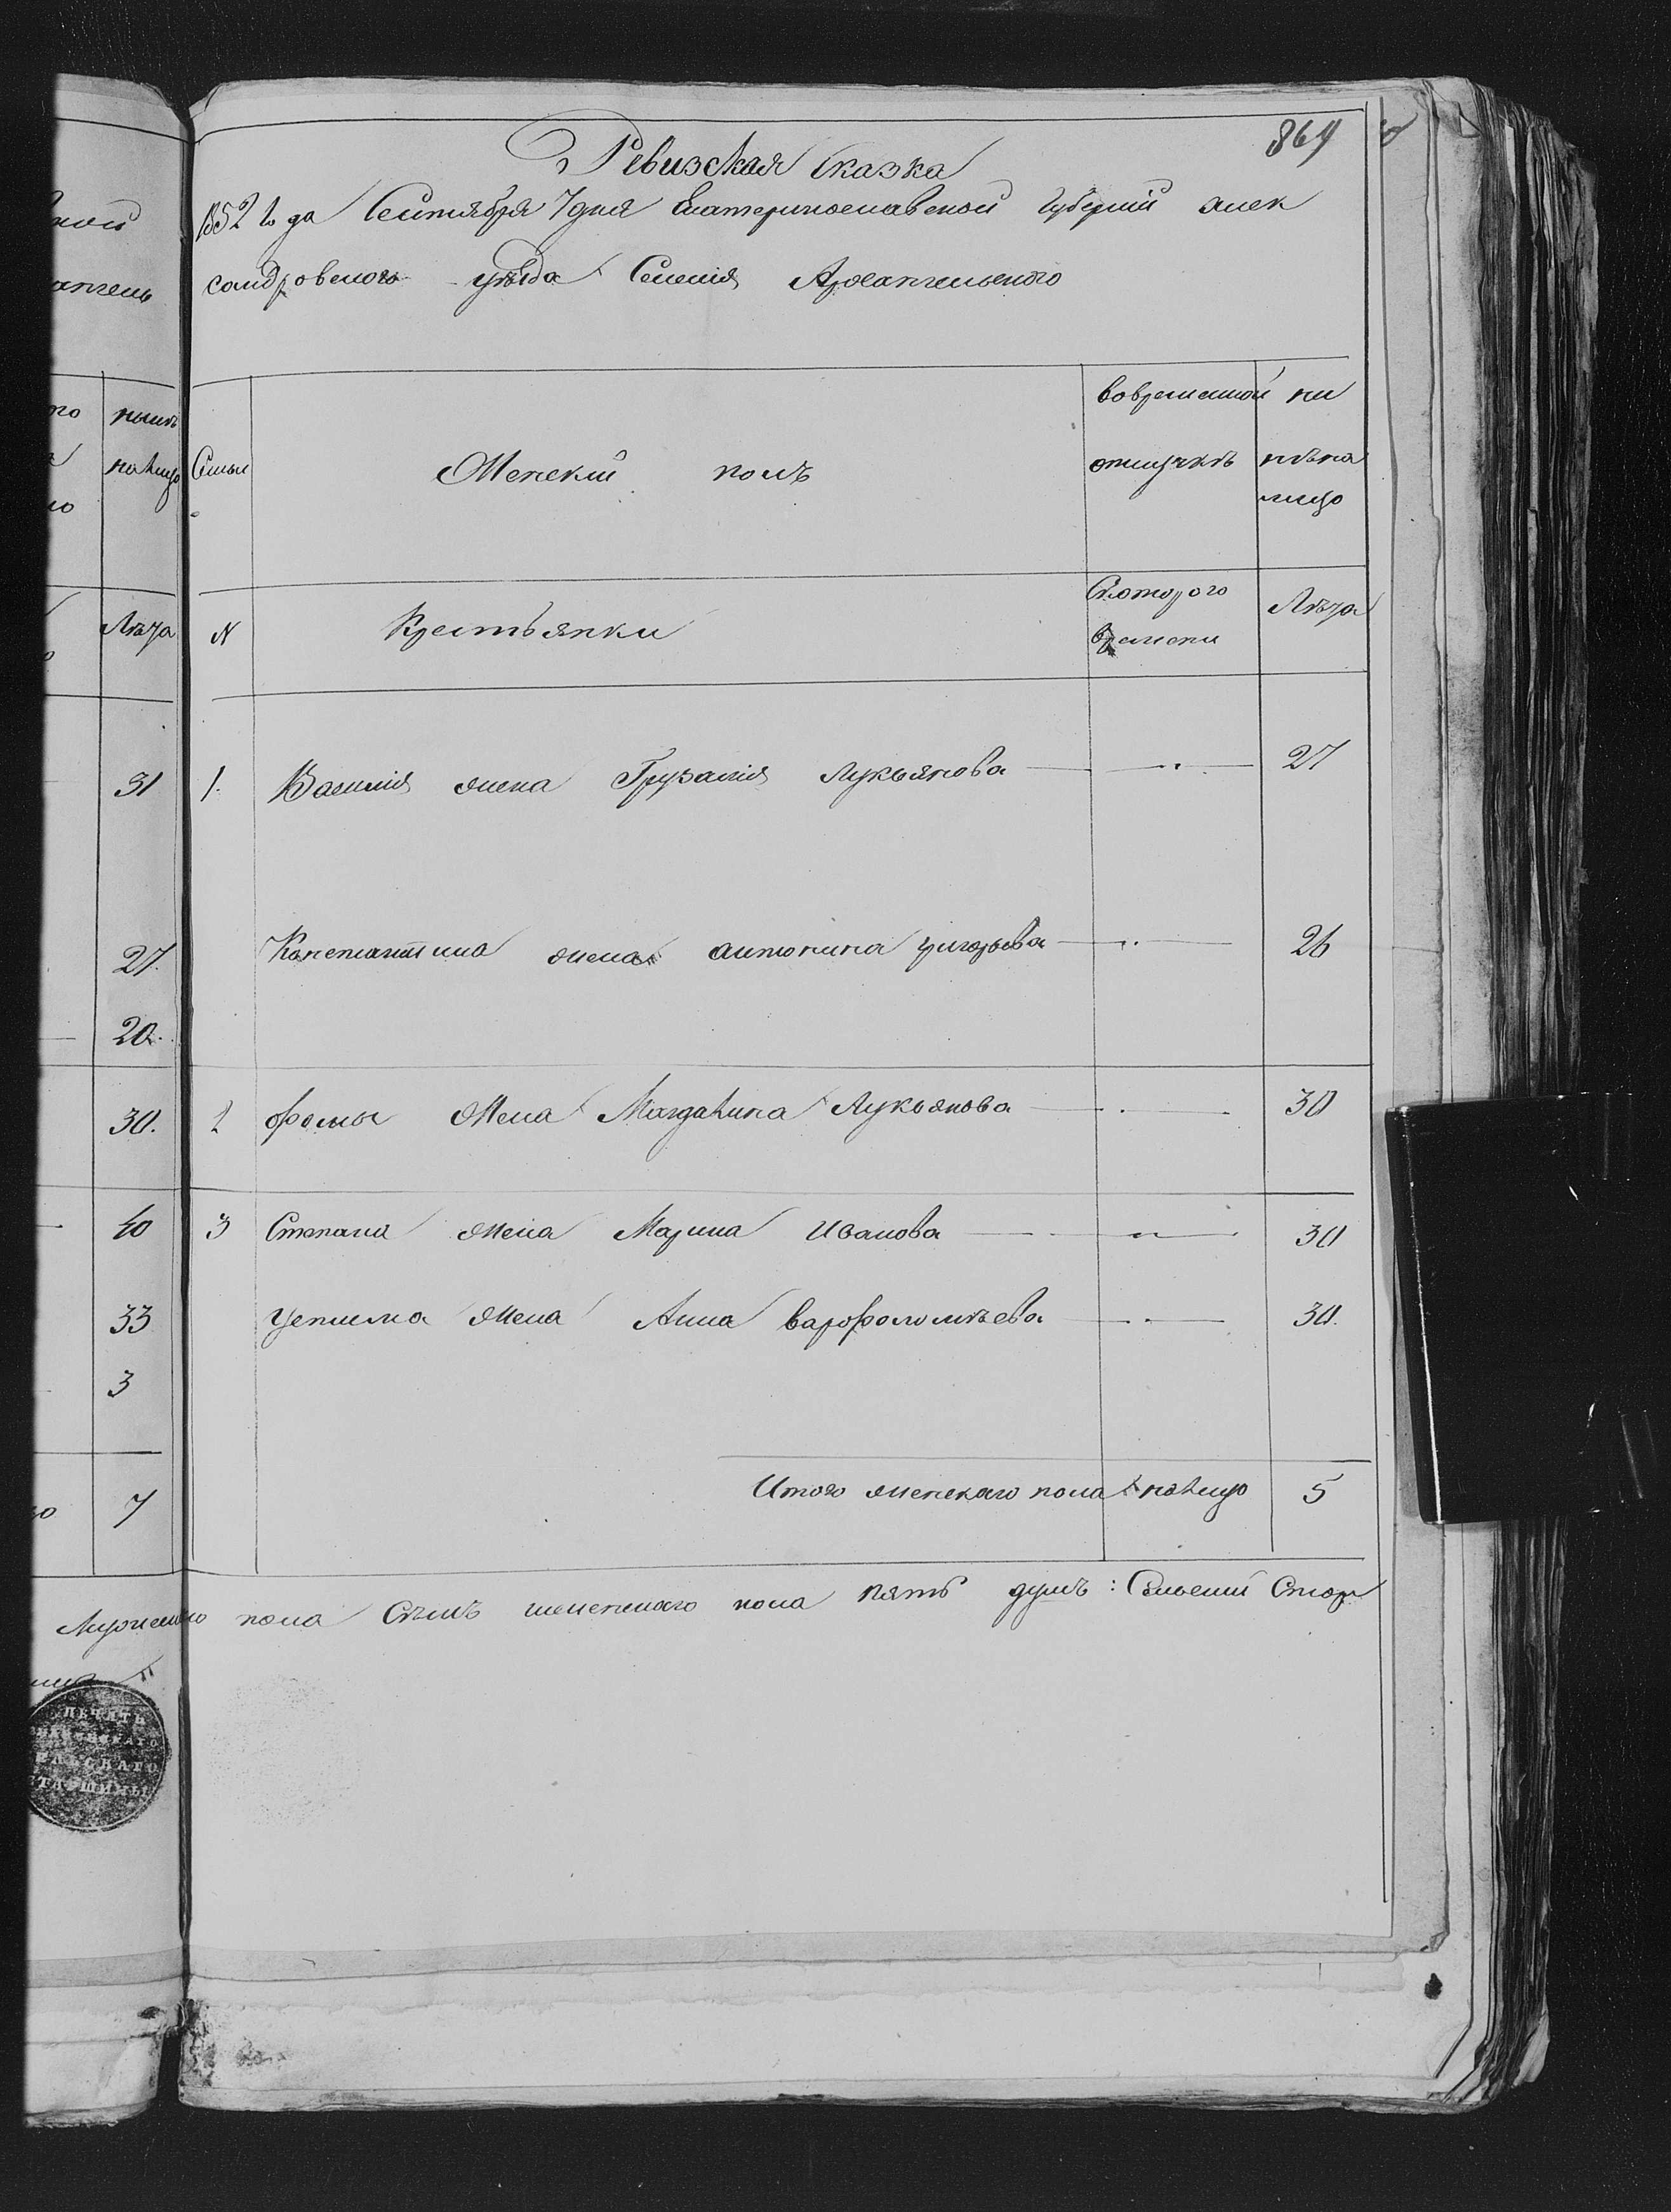 864
Ревизская сказка
1852 года Сентября 7 дня Екатеринославской губернии алек
сандровского уѣзда Селения Архангельского
Семьи
Женский полъ
вовременной отлучкѣ
ни нѣ на лицо
N
Крестьянки
Скоторого времени
Лѣта
1. Василия жена Лукьянова 27
Константина жена антонина григорьева 26
2 Фомы жена Магдалина Лукьянова 30
3 Степана жена Марина Иванова 30
жена Анна варфоломѣева 30.
Итого женскаго пола налицо 5
Мужеского пола Семъ женскаго пола пять душъ: Сельский Стар
ной
ангель
нынѣ
налицо
Лѣта
31
27.
20.
30.
40
33
3
7
ПЕЧАТЬ
СТАРШИНЫ